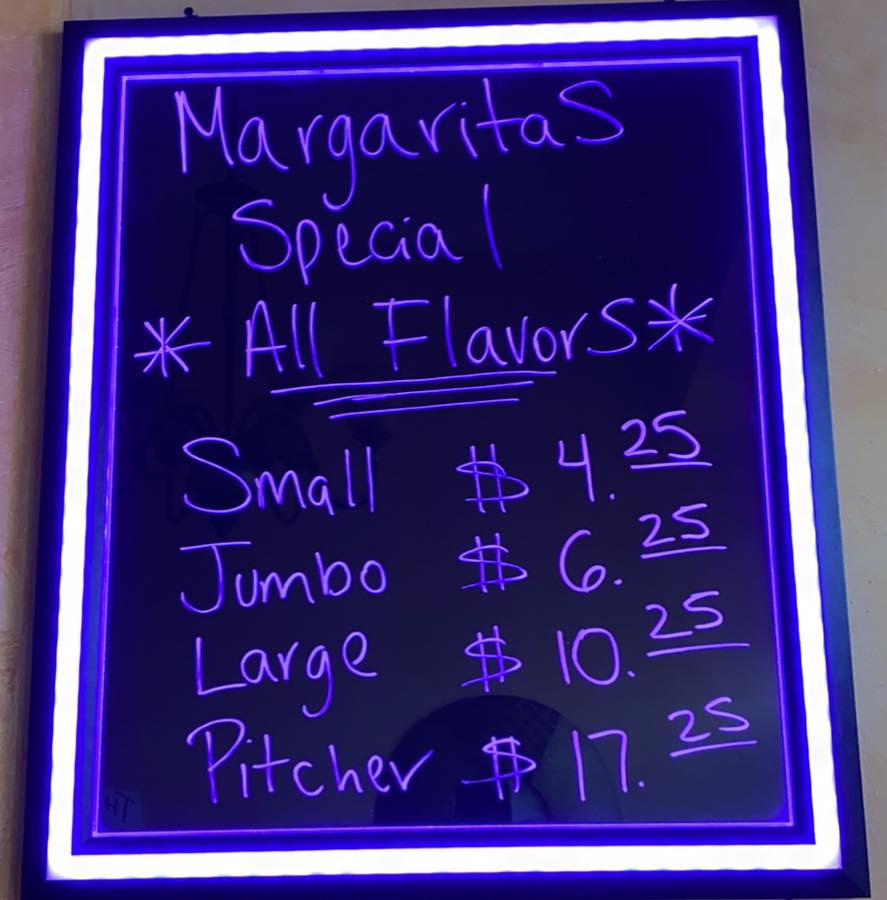 MargaritaS
Special
* All FlavorS *
Small $ 4.25
Jumbo $ 6.25
Large $ 10.25
Pitcher $ 17.25